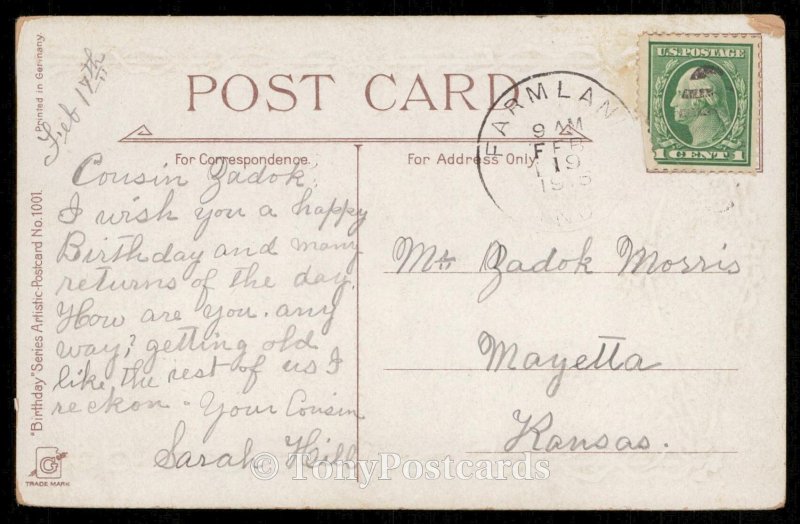 Feb 17th
Printed in Germany.
"Birthday" Series Artistic-Postcard No. 1001.
G
TRADE MARK
POST CARD
For Correspondence.
For Address Only.
FARMLAN
9 AM
FEB
19
IND
U.S. POSTAGE
1 CENT 1
Cousin Zadok,
I wish you a happy
Birthday and many
returns of the day.
How are you. any
way? getting old
like the rest of us I
reckon - Your Cousin
Sarah Hill
Mr Zadok Morris
Mayetta
Kansas.
© TonyPostcards